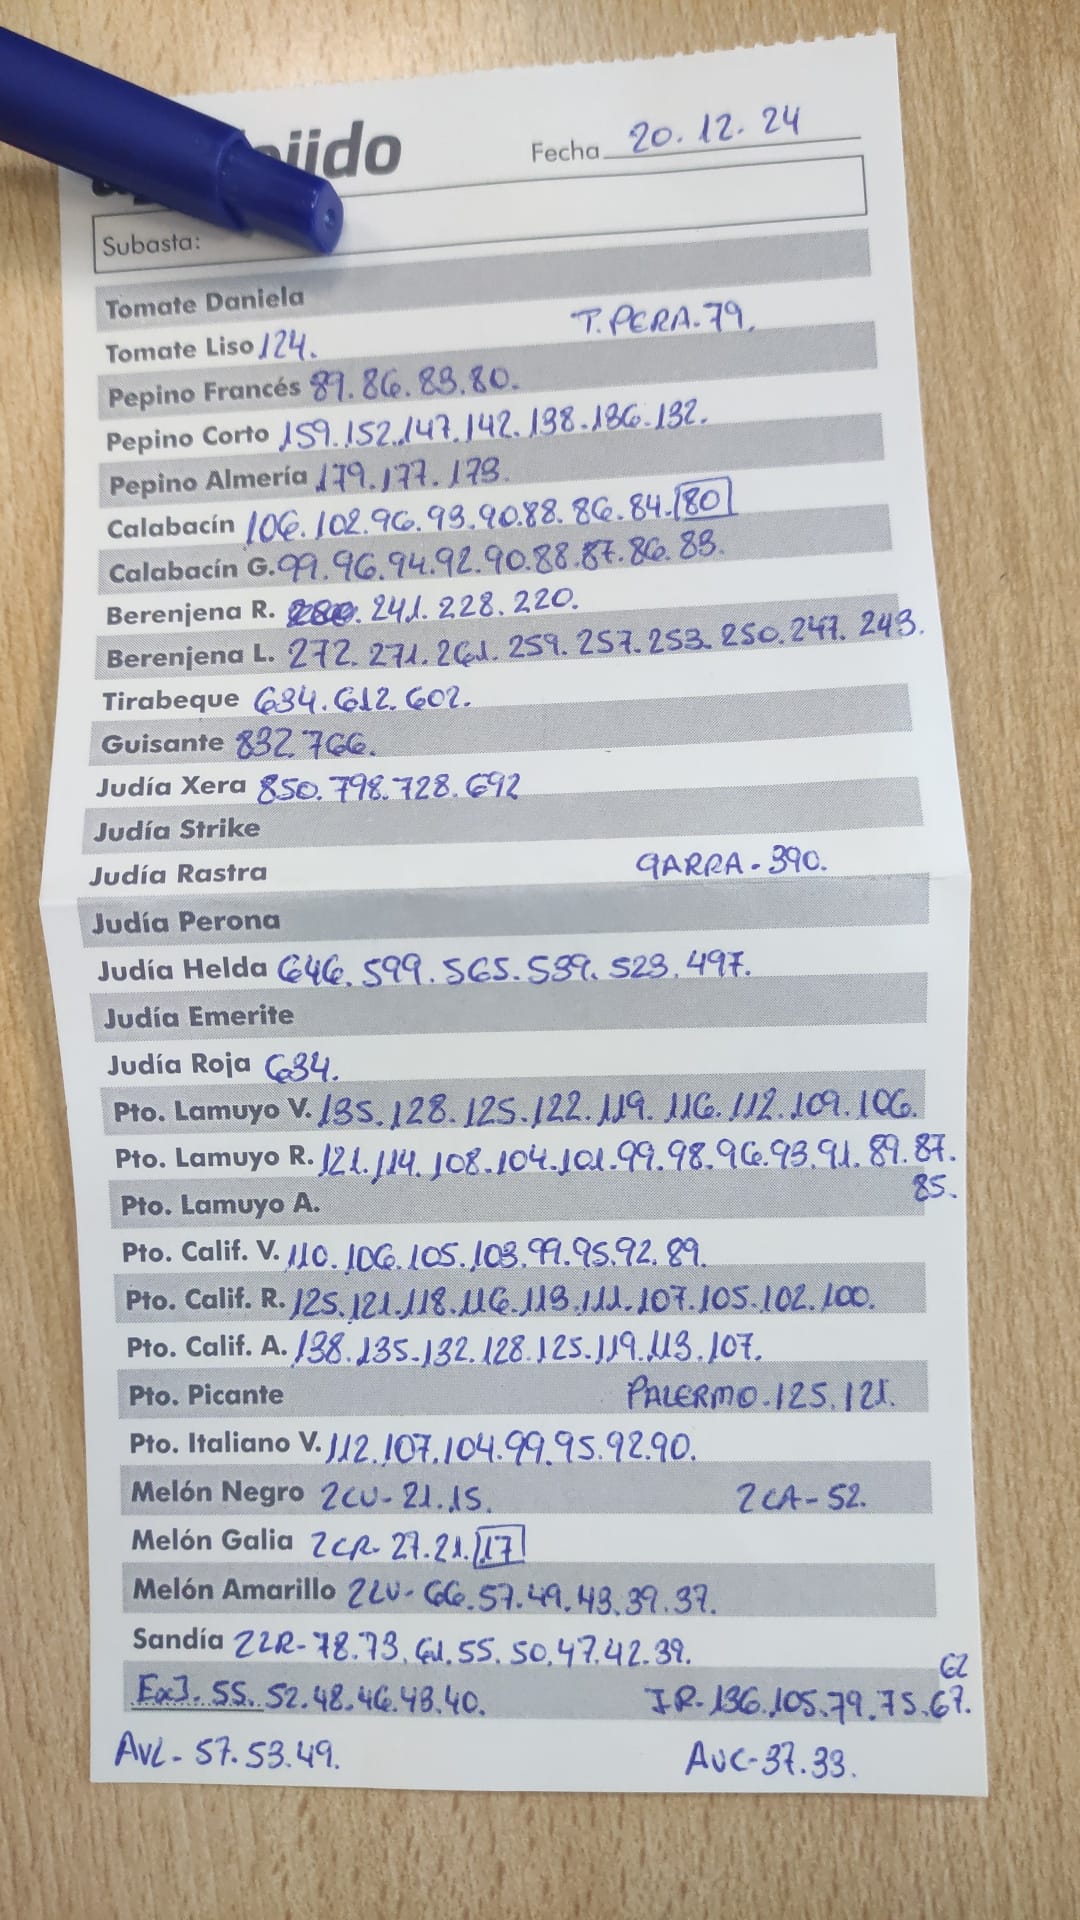 ejido
Fecha 20.12.24
Subasta:
Tomate Daniela
T.PERA-79.
Tomate Liso 124.
Pepino Francés 89.86.83.80.
Pepino Corto 159.152.147.142.138.136.132.
Pepino Almería 179.177.173.
Calabacín 106.102.96.93.90.88.86.84.80
Calabacín G. 99.96.94.92.90.88.87.86.83.
Berenjena R. 241.228.220.
Berenjena L. 272.271.261.259.257.253.250.247.243.
Tirabeque 634.612.602.
Guisante 832.766.
Judía Xera 850.798.728.692
Judía Strike
Judía Rastra GARRA-390.
Judía Perona
Judía Helda 646.599.565.539.523.497.
Judía Emerite
Judía Roja 634.
Pto. Lamuyo V. 135.128.125.122.119.116.112.109.106.
Pto. Lamuyo R. 121.114.108.104.101.99.98.96.93.91.89.87.
85.
Pto. Lamuyo A.
Pto. Calif. V. 110.106.105.103.99.95.92.89.
Pto. Calif. R. 125.121.118.116.113.111.107.105.102.100.
Pto. Calif. A. 138.135.132.128.125.119.113.107.
Pto. Picante PALERMO.125.121.
Pto. Italiano V. 112.107.104.99.95.92.90.
Melón Negro 2CU-21.15. 2CA-52.
Melón Galia 2CR-27.21.17
Melón Amarillo 2LU-66.57.49.43.39.37.
Sandía 22R-78.73.61.55.50.47.42.39.
62
55.52.48.46.43.40. IR-136.105.79.75.67.
AVL-57.53.49. AUC-37.33.